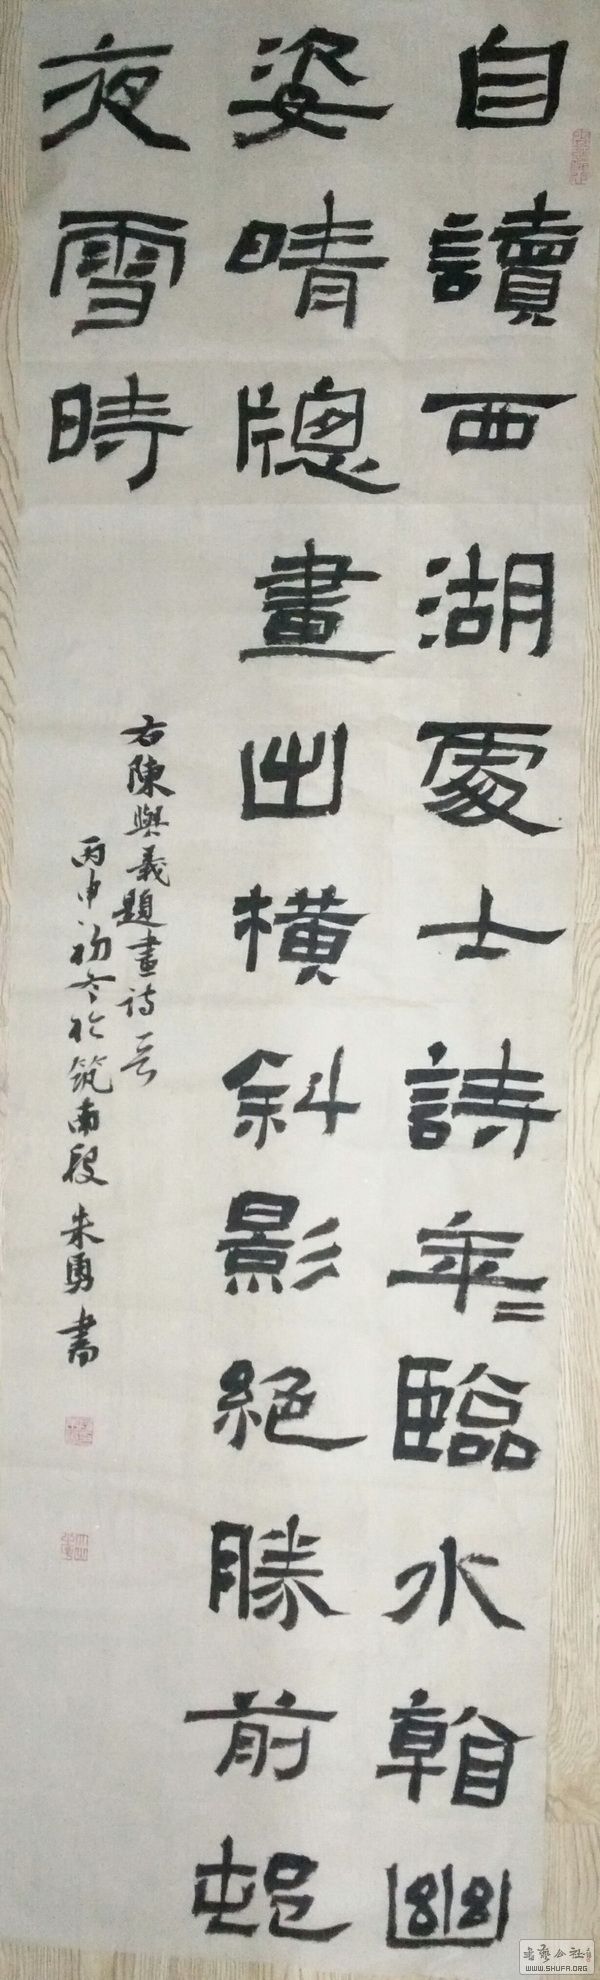 自讀西湖處士詩年〻臨水𣄃幽
姿晴牕畫出橫斜影絕勝前邨
夜雪時
右陳與義題畫詩一首
丙申初冬於筑南段朱勇書
書藝公社
WWW.SHUFA.ORG